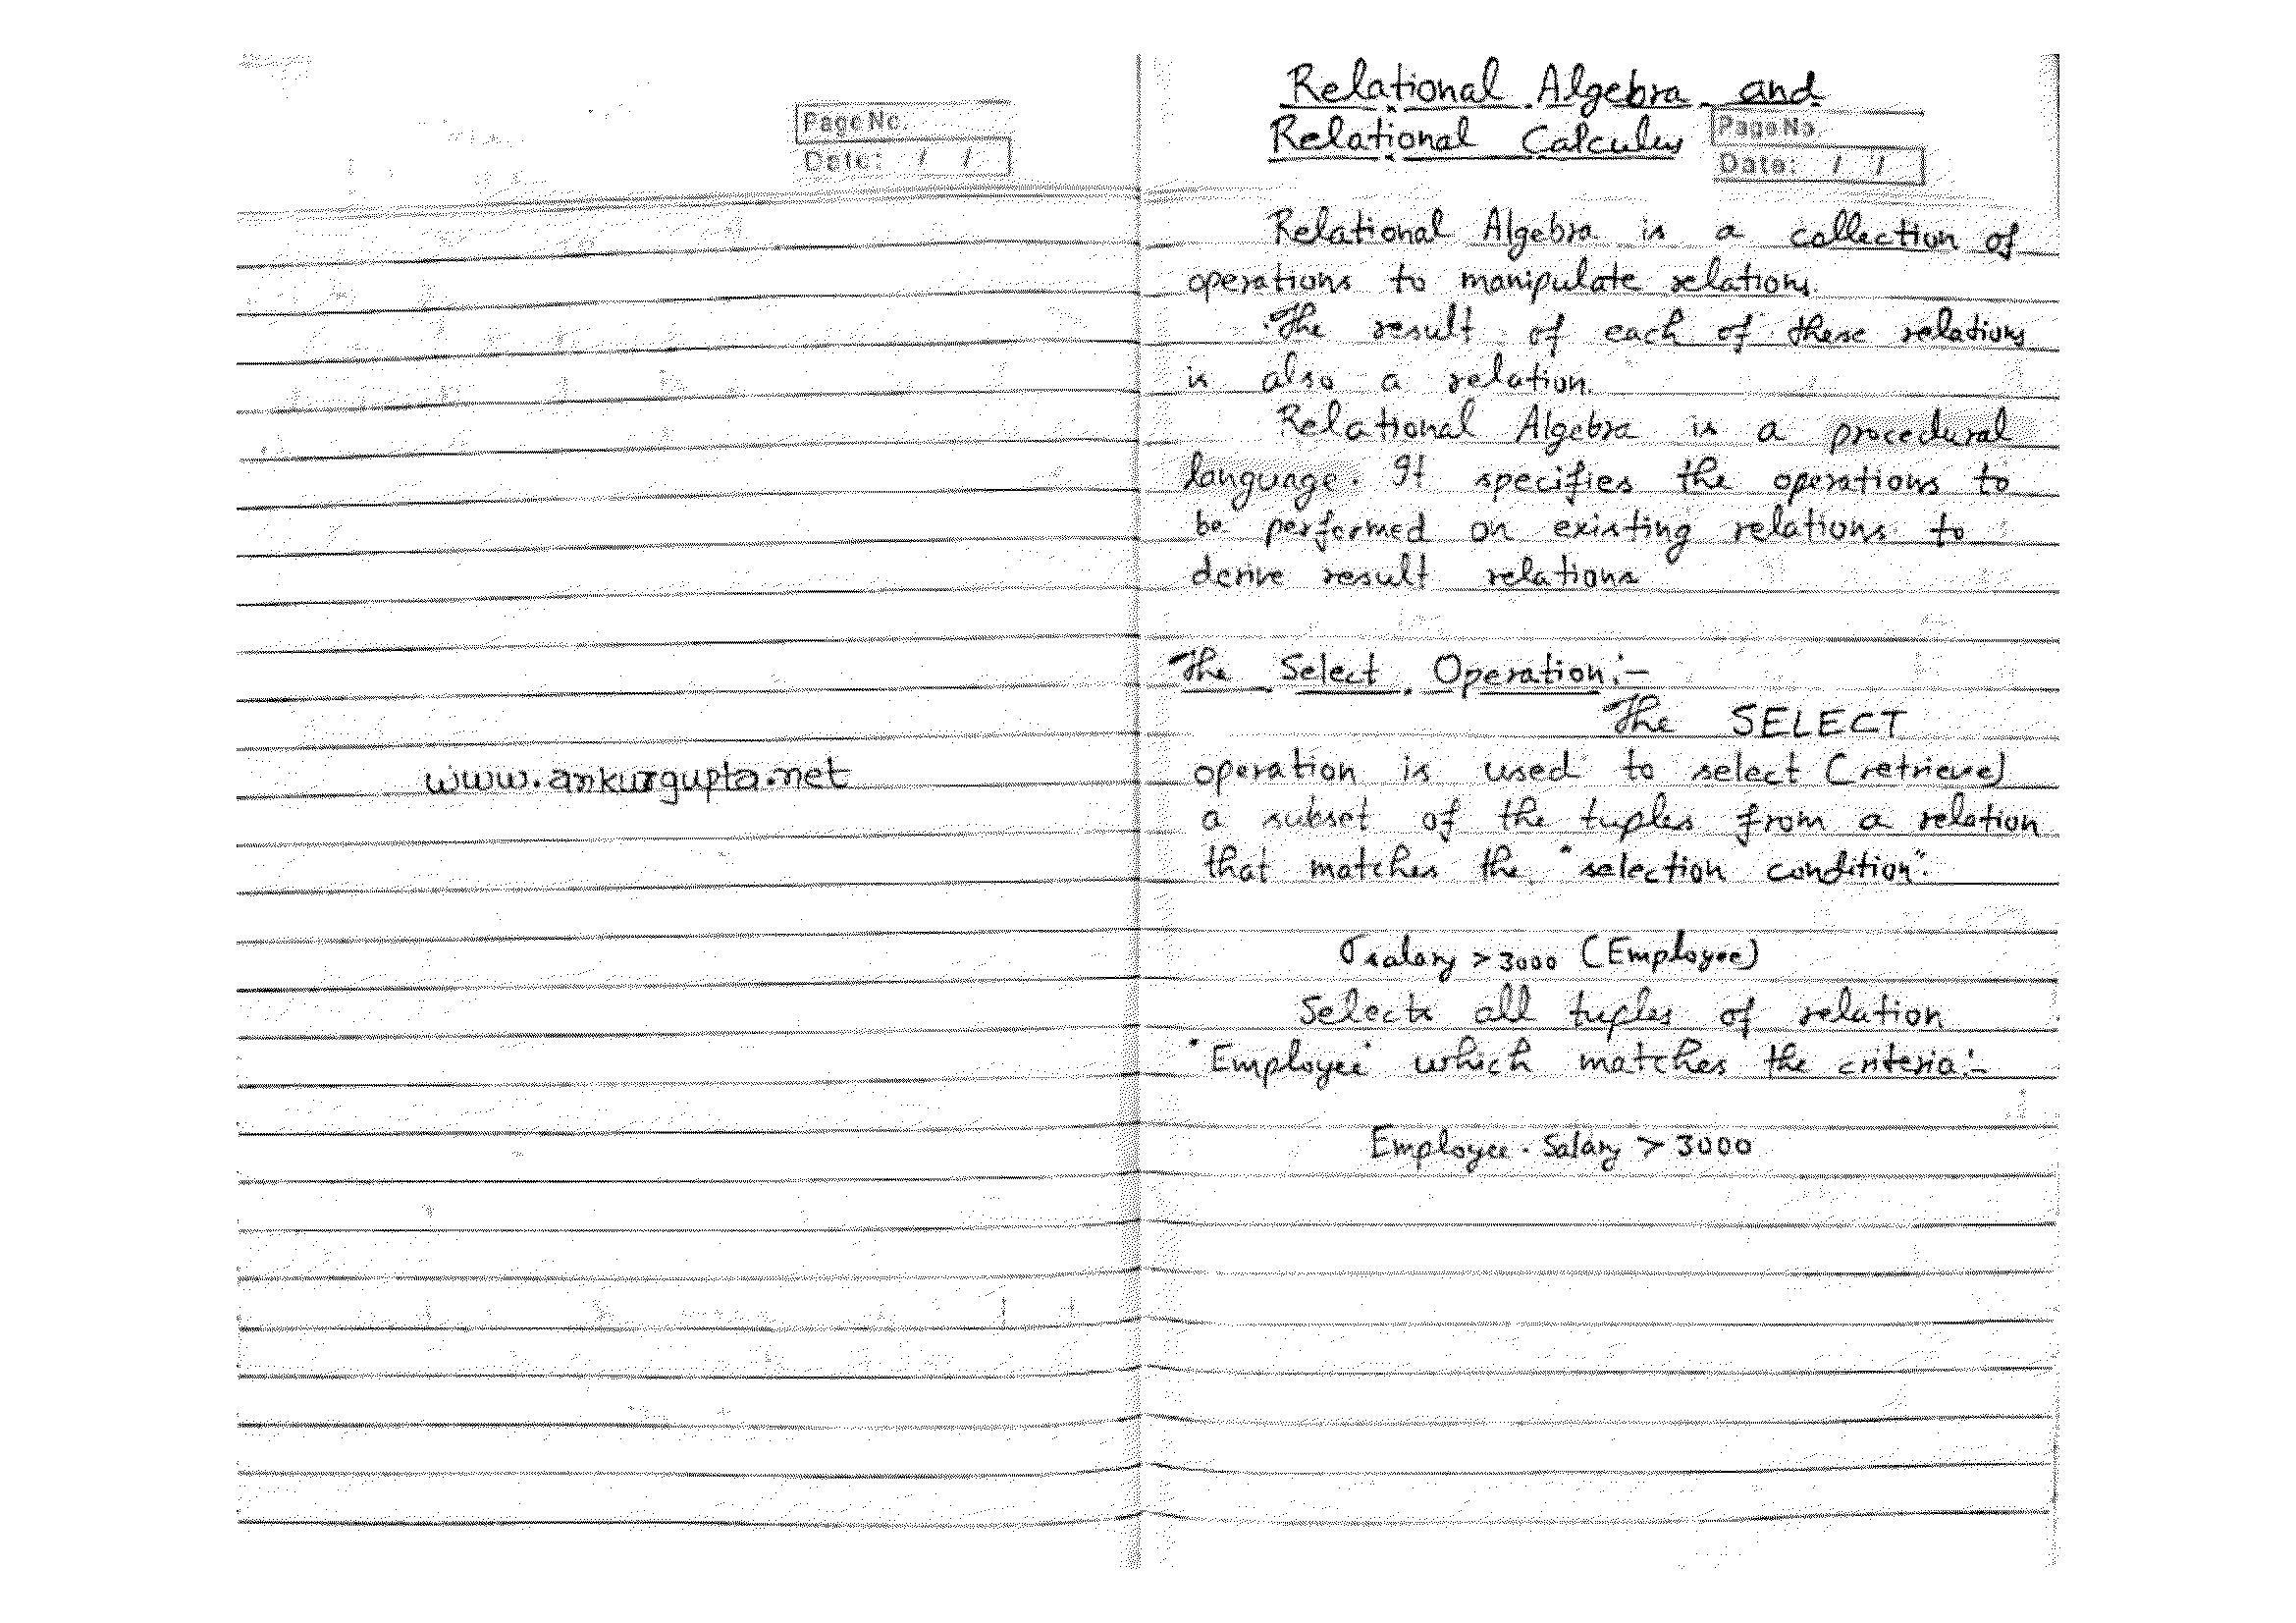 Page No.
Date: / /
www.ankurgupta.net
Relational Algebra and
Relational Calculus
Page No.
Date: / /
Relational Algebra is a collection of
operations to manipulate relations.
The result of each of these relations
is also a relation.
Relational Algebra is a procedural
language. It specifies the operations to
be performed on existing relations to
derive result relations
The Select Operation:-
The SELECT
operation is used to select (retrieve)
a subset of the tuples from a relation
that matches the "selection condition".
σsalary > 3000 (Employee)
Selects all tuples of relation
"Employee" which matches the criteria:-
Employee. Salary > 3000